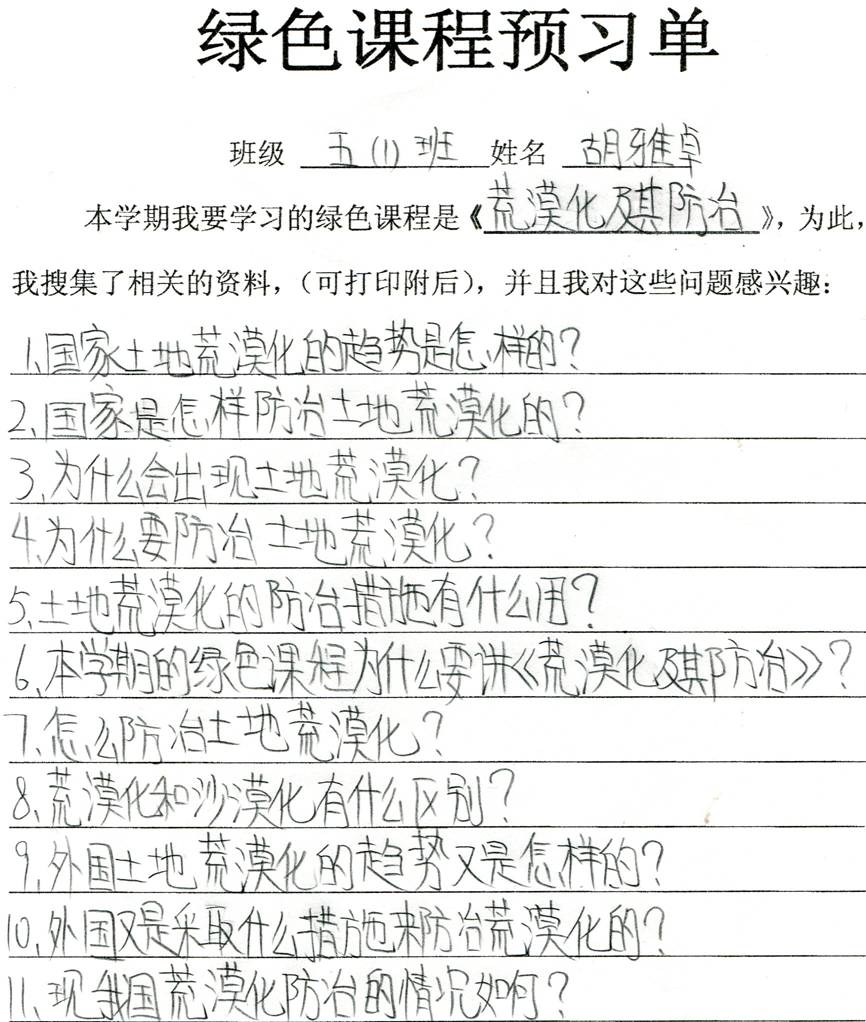 绿色课程预习单
班级 五(1)班 姓名 胡雅卓
本学期我要学习的绿色课程是《荒漠化及其防治》，为此，
我搜集了相关的资料，（可打印附后），并且我对这些问题感兴趣：
1、国家土地荒漠化的趋势是怎样的？
2、国家是怎样防治土地荒漠化的？
3、为什么会出现土地荒漠化？
4、为什么要防治土地荒漠化？
5、土地荒漠化的防治措施有什么用？
6、本学期的绿色课程为什么要讲《荒漠化及其防治》？
7、怎么防治土地荒漠化？
8、荒漠化和沙漠化有什么区别？
9、外国土地荒漠化的趋势又是怎样的？
10、外国又是采取什么措施来防治荒漠化的？
11、现我国荒漠化防治的情况如何？